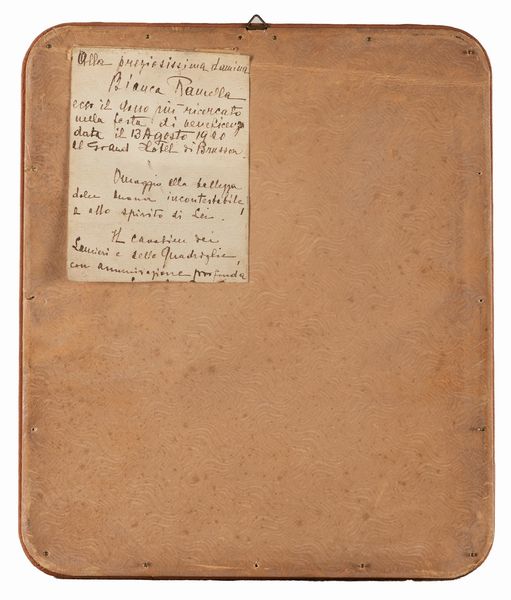 Alla preziosissima damina
Bianca Ramella
ecco il dono più ricercato
nella festa di beneficenza
data il 13 Agosto 1920
al Grand Hôtel di Brusson.
Omaggio alla bellezza
dolce buona incontestabile,
e allo spirito di Lei.
Il cavalier dei
Lancieri e delle Quadriglie,
con ammirazione profonda